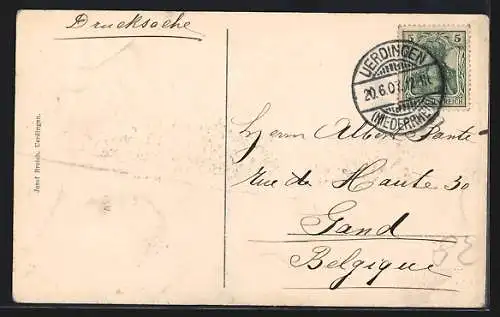 Drucksache
5 5
UERDINGEN
20.6.07.12-1N.
(NIEDERRH.)
REICH
Josef Breish, Uerdingen.
Herrn Albert Pante
Rue de Haute 30
Gand
Belgique